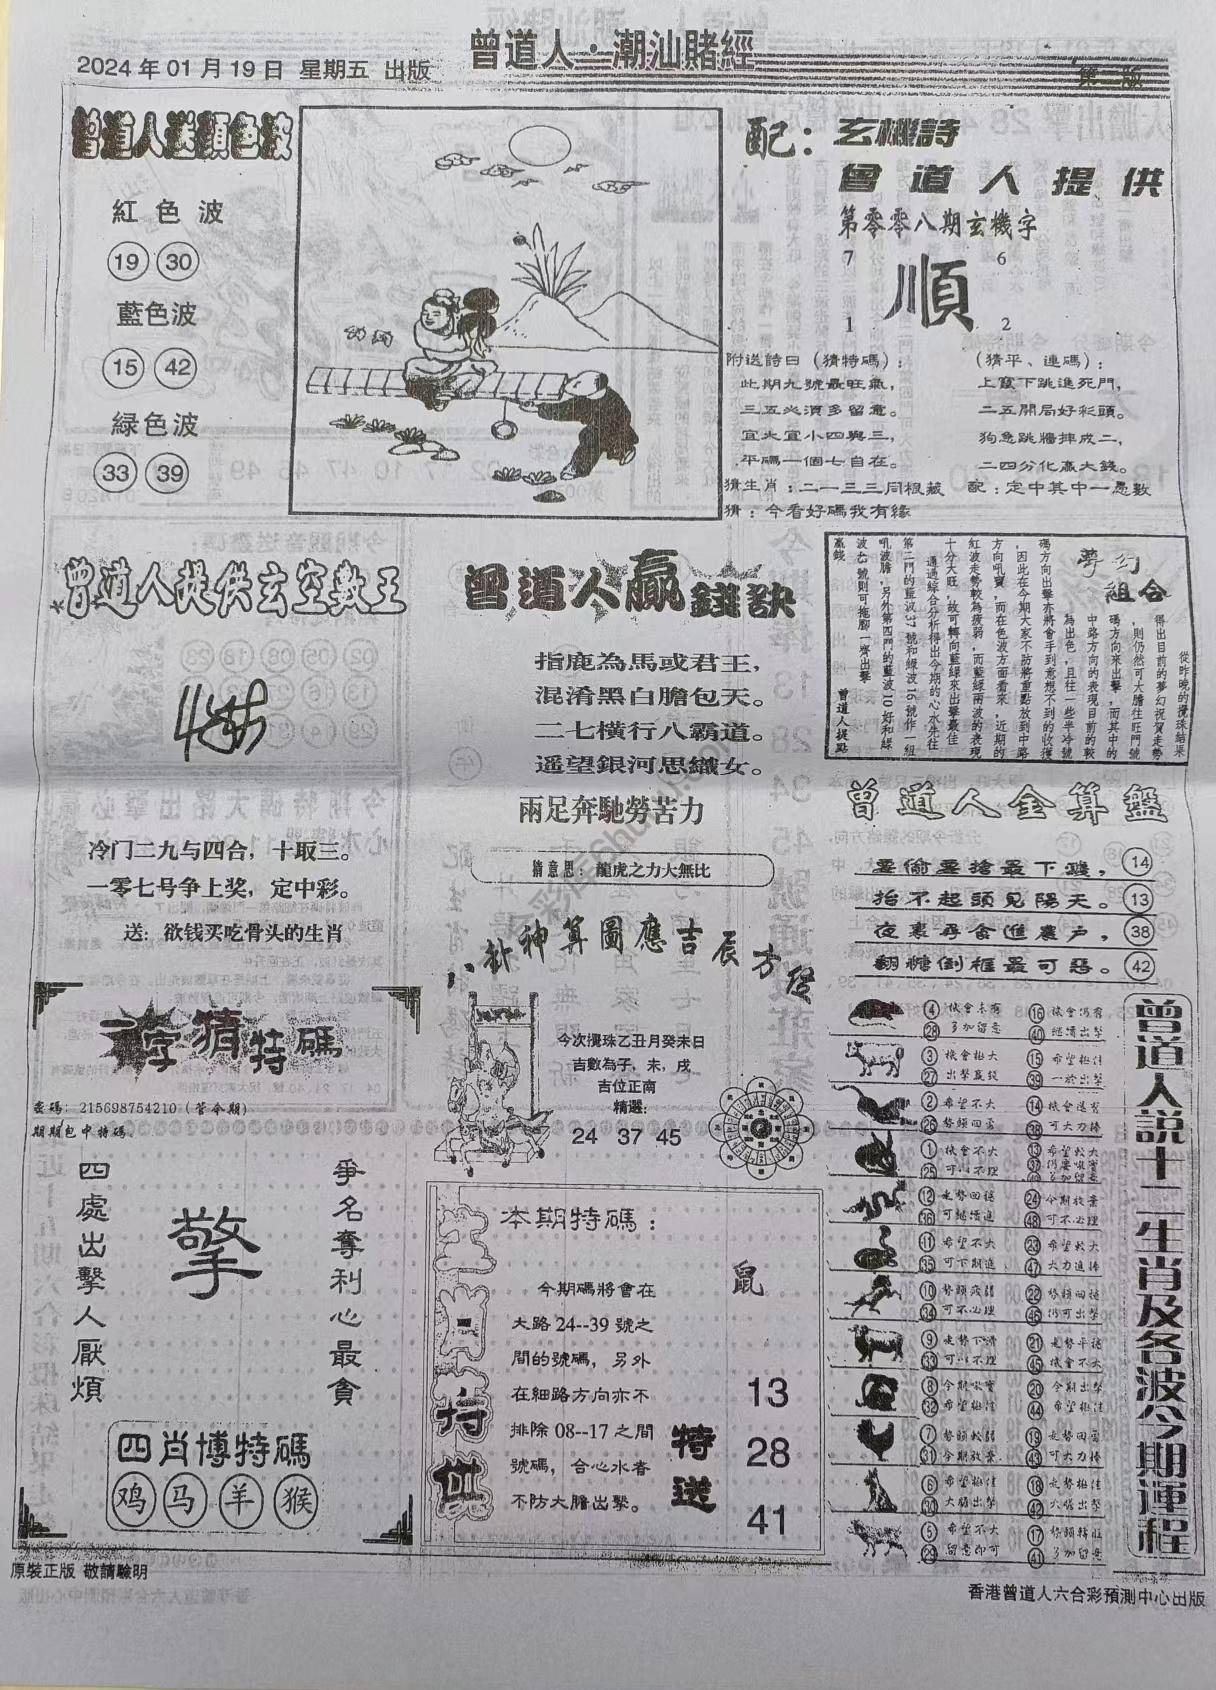 2024年01月19日 星期五 出版
曾道人·潮汕賭經
第二版
曾道人送顏色波
紅色波
19 30
藍色波
15 42
綠色波
33 39
配：玄機詩
曾道人提供
第零零八期玄機字
7 6
順
1 2
附送詩曰（猜特碼）：
此期九號最旺氣，
三五必須多留意。
宜大宜小四與三，
平碼一個七自在。
（猜平、連碼）：
上竄下跳進死門，
二五開局好彩頭。
狗急跳牆摔成二，
二四分化贏大錢。
猜生肖：二一三三同根藏 配：定中其中一愚數
猜：今看好碼我有緣
曾道人提供玄空數王
冷门二九与四合，十取三。
一零七号争上奖，定中彩。
送：欲钱买吃骨头的生肖
曾道人贏錢訣
指鹿為馬或君王，
混淆黑白膽包天。
二七橫行八霸道。
遥望銀河思織女。
兩足奔馳勞苦力
猜意思：龍虎之力大無比
夢幻組合
從昨晚的攪珠結果
得出目前的夢幻祝賀走勢
，則仍然可大膽往旺門號
碼方向來出擊，而其中的
中路方向的表現目前的較
為出色，且往一些半冷號
碼方向出擊亦將會手到意想不到的收獲
，因此在今期大家不防將重點放到中路
方向吼寶，而在色波方面看來，近期的
紅波走勢較為疲弱，而藍綠兩波的表現
十分大旺，故可轉向藍綠來出擊最佳
通過綜合分析得出今期的心水先往
第二門的藍波37號和綠波16號作一組
吼波膽，另外第四門的藍波10好和綠
波43號則可拖腳一齊出擊
贏錢
曾道人提點
曾道人金算盤
要偷要搶最下濺， 14
抬不起頭見陽天。 13
夜裏尋食進農戶， 38
翻糖倒框最可惡。 42
八卦神算圖應吉辰方發
今次攪珠乙丑月癸未日
吉數為子，未，戌
吉位正南
精選：
24 37 45
一字猜特碼
密碼：215698754210（管令期）
期期包中特碼
四處出擊人厭煩
擎
爭名奪利心最貪
四肖博特碼
鸡 马 羊 猴
本期特碼：
鼠
今期碼將會在
大路24--39號之
間的號碼，另外
在細路方向亦不
排除08--17之間
號碼，合心水者
不防大膽出擊。
特送
13
28
41
曾道人説十二生肖及各波今期運程
4 機會未有 16 機會仍有
28 多加留意 40 繼續出擊
3 機會極大 15 希望極佳
27 出擊贏錢 39 一於出擊
2 希望不大 14 機會送有
26 勢頭回雲 38 可大力捧
1 機會不大 13 希望較大
25 可以不理 37
12 走勢回穩 24 今期放棄
36 可繼續追 48 可不必理
11 希望不大 23 希望較大
35 可下期追 47 大力追捧
10 勢頭疲弱 22 勢頭回穩
34 可不必理 46 仍可出擊
9 走勢下滑 21 走勢平穩
33 可以不理 45 機會不大
8 今期吸寶 20 今期出擊
32 希望極佳 44 希望極佳
7 勢頭較弱 19 走勢回雲
31 今期放棄 43 可大力捧
6 希望極佳 18 走勢極佳
30 大膽出擊 42 大膽出擊
5 希望不大 17 勢頭轉旺
29 留意即可 41 多加留意
原裝正版 敬請驗明
香港曾道人六合彩預測中心出版